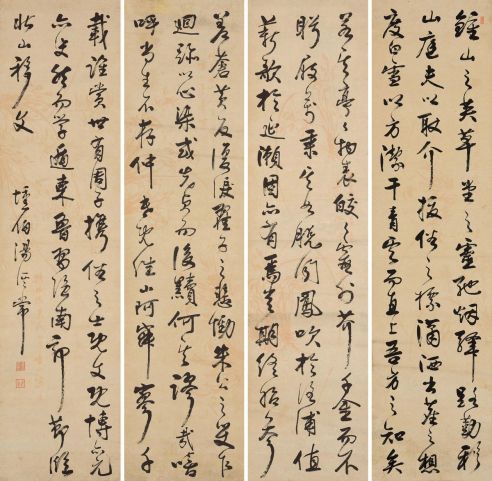 鍾山之英草堂之靈馳烟驛路勒移
山庭夫以耿介拔俗之標瀟洒出塵之想
度白雪以方潔干青雲而直上吾方之知矣
若其亭亭物表皎皎霞外芥千金而不
眄屣萬乘其如脫聞鳳吹於洛浦值
薪歌於延瀨固亦有焉豈期終始參
差蒼黃反復淚翟子之悲慟朱公之哭乍
迴跡以心染或先貞而後黷何其謬哉嗚
呼尚生不存仲氏既往山阿寂寥千
載誰賞世有周子攜俗之士既文既博亦元
亦史然而學遁東魯習隱南郭
北山移文
伯湯